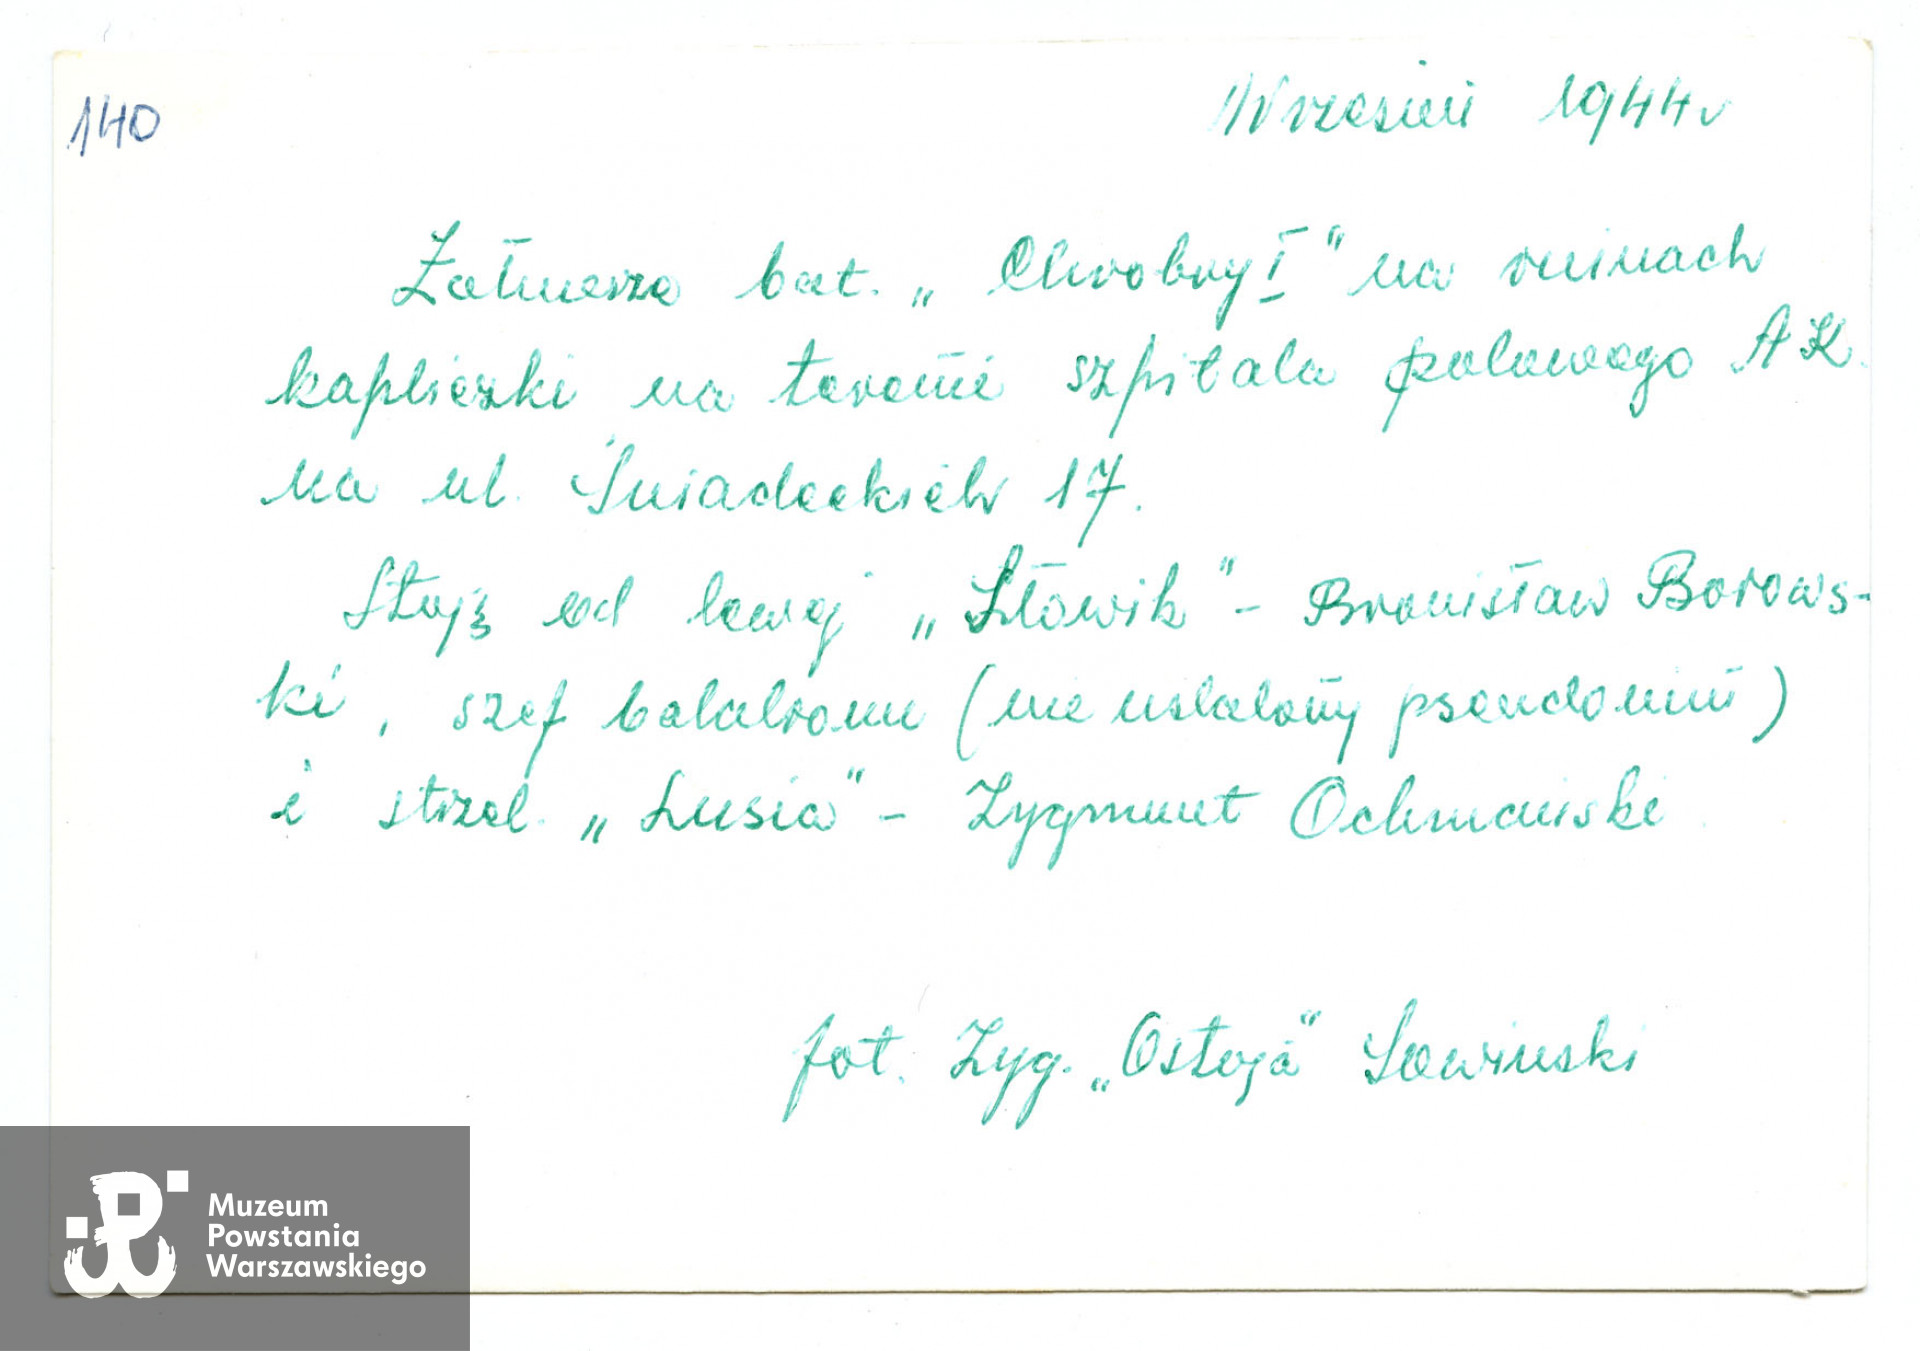 140
Wrzesień 1944 r
Żołnierze bat. „Chrobry I" na ruinach
kapliczki na terenie szpitala polowego AK.
na ul. Śniadeckich 17.
Stoją od lewej „Słowik" – Bronisław Borows-
ki, szef batalionu (nie ustalony pseudonim)
i strzel. „Lusia" – Zygmunt Ochmański.
fot. Zyg. „Ostoja" Sowiński
Muzeum
Powstania
Warszawskiego